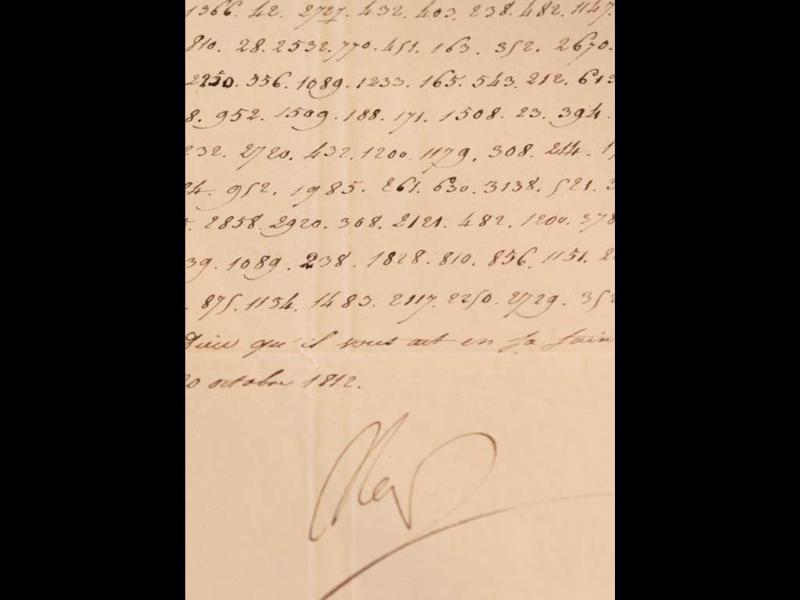 1366. 42. 2727. 432. 403. 238. 482. 1147.
810. 28. 2532. 770. 451. 163. 352. 2670.
2250. 356. 1089. 1233. 165. 543. 212. 613
8. 952. 1599. 188. 171. 1508. 23. 394.
232. 2720. 432. 1200. 1179. 308. 244. 1
24. 952. 1985. 261. 630. 3138. 521.
2858. 2920. 308. 2121. 482. 1200. 378
39. 1089. 238. 1828. 810. 856. 1151. 2
. 875. 1134. 1483. 2117. 2250. 2729. 352
Dieu qu'il vous ait en sa sain
20 octobre 1812.
Nap